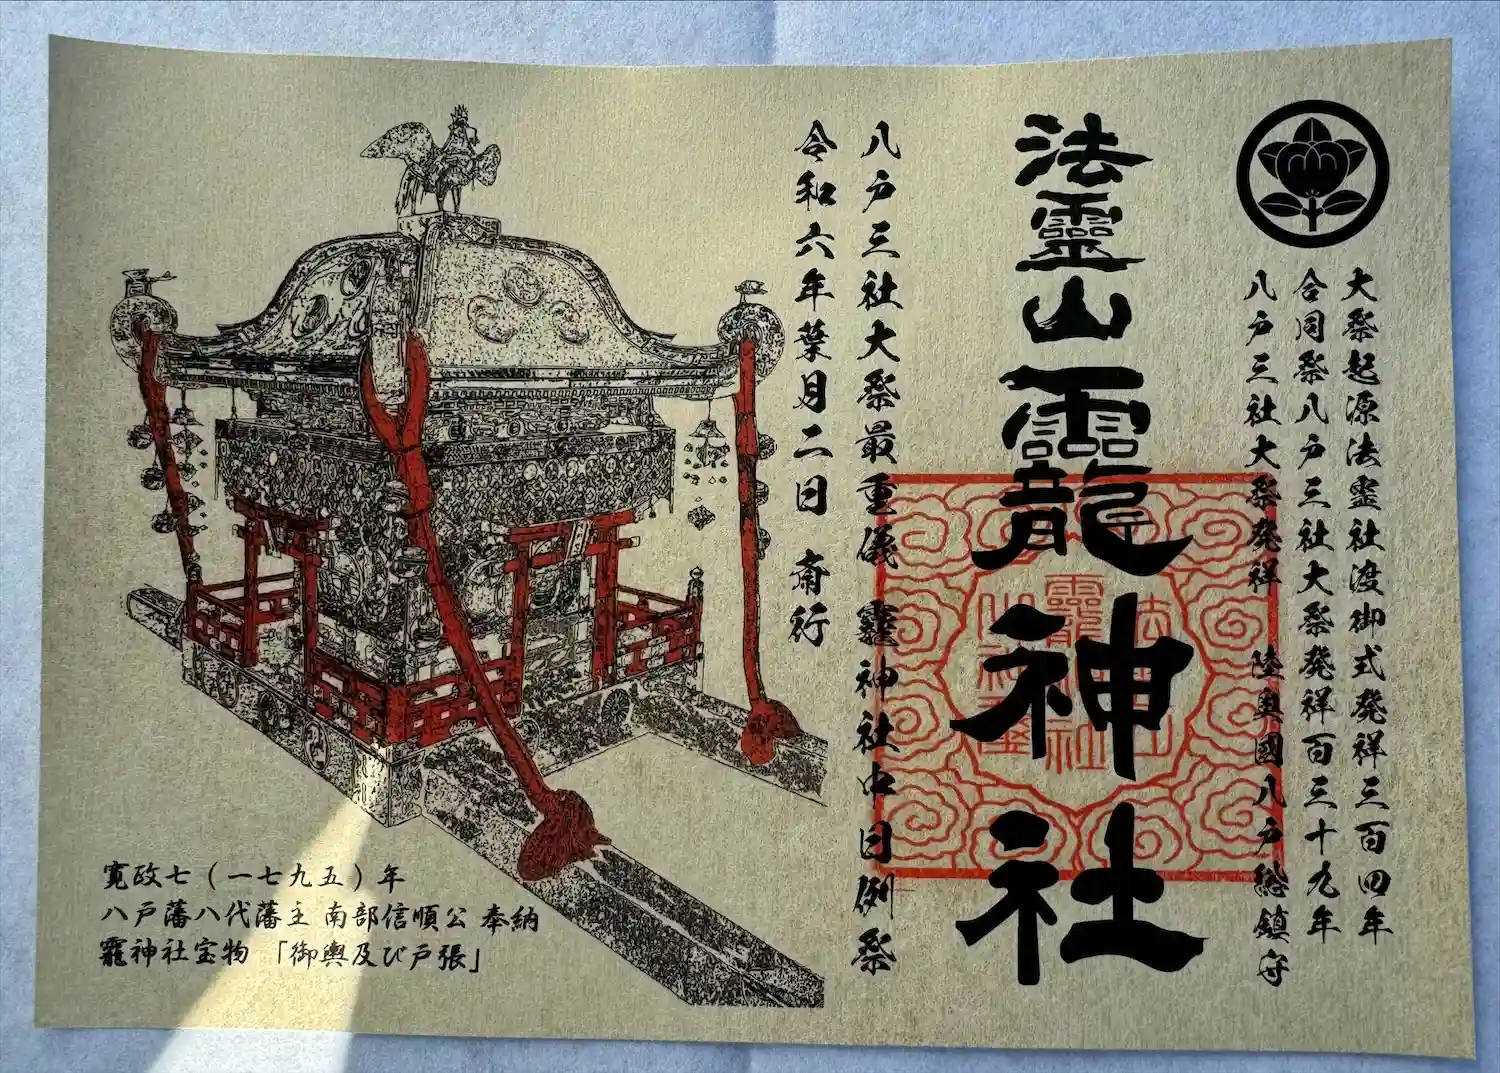 大祭起源法霊社渡御式発祥三百四年
合同祭八戸三社大祭発祥百三十九年
八戸三社大祭発祥 陸奥國八戸総鎮守
法靈山龗神社
八戸三社大祭最重儀 龗神社中日例祭
令和六年葉月二日 斎行
寛政七(一七九五)年
八戸藩八代藩主 南部信順公 奉納
龗神社宝物 「御輿及び戸張」